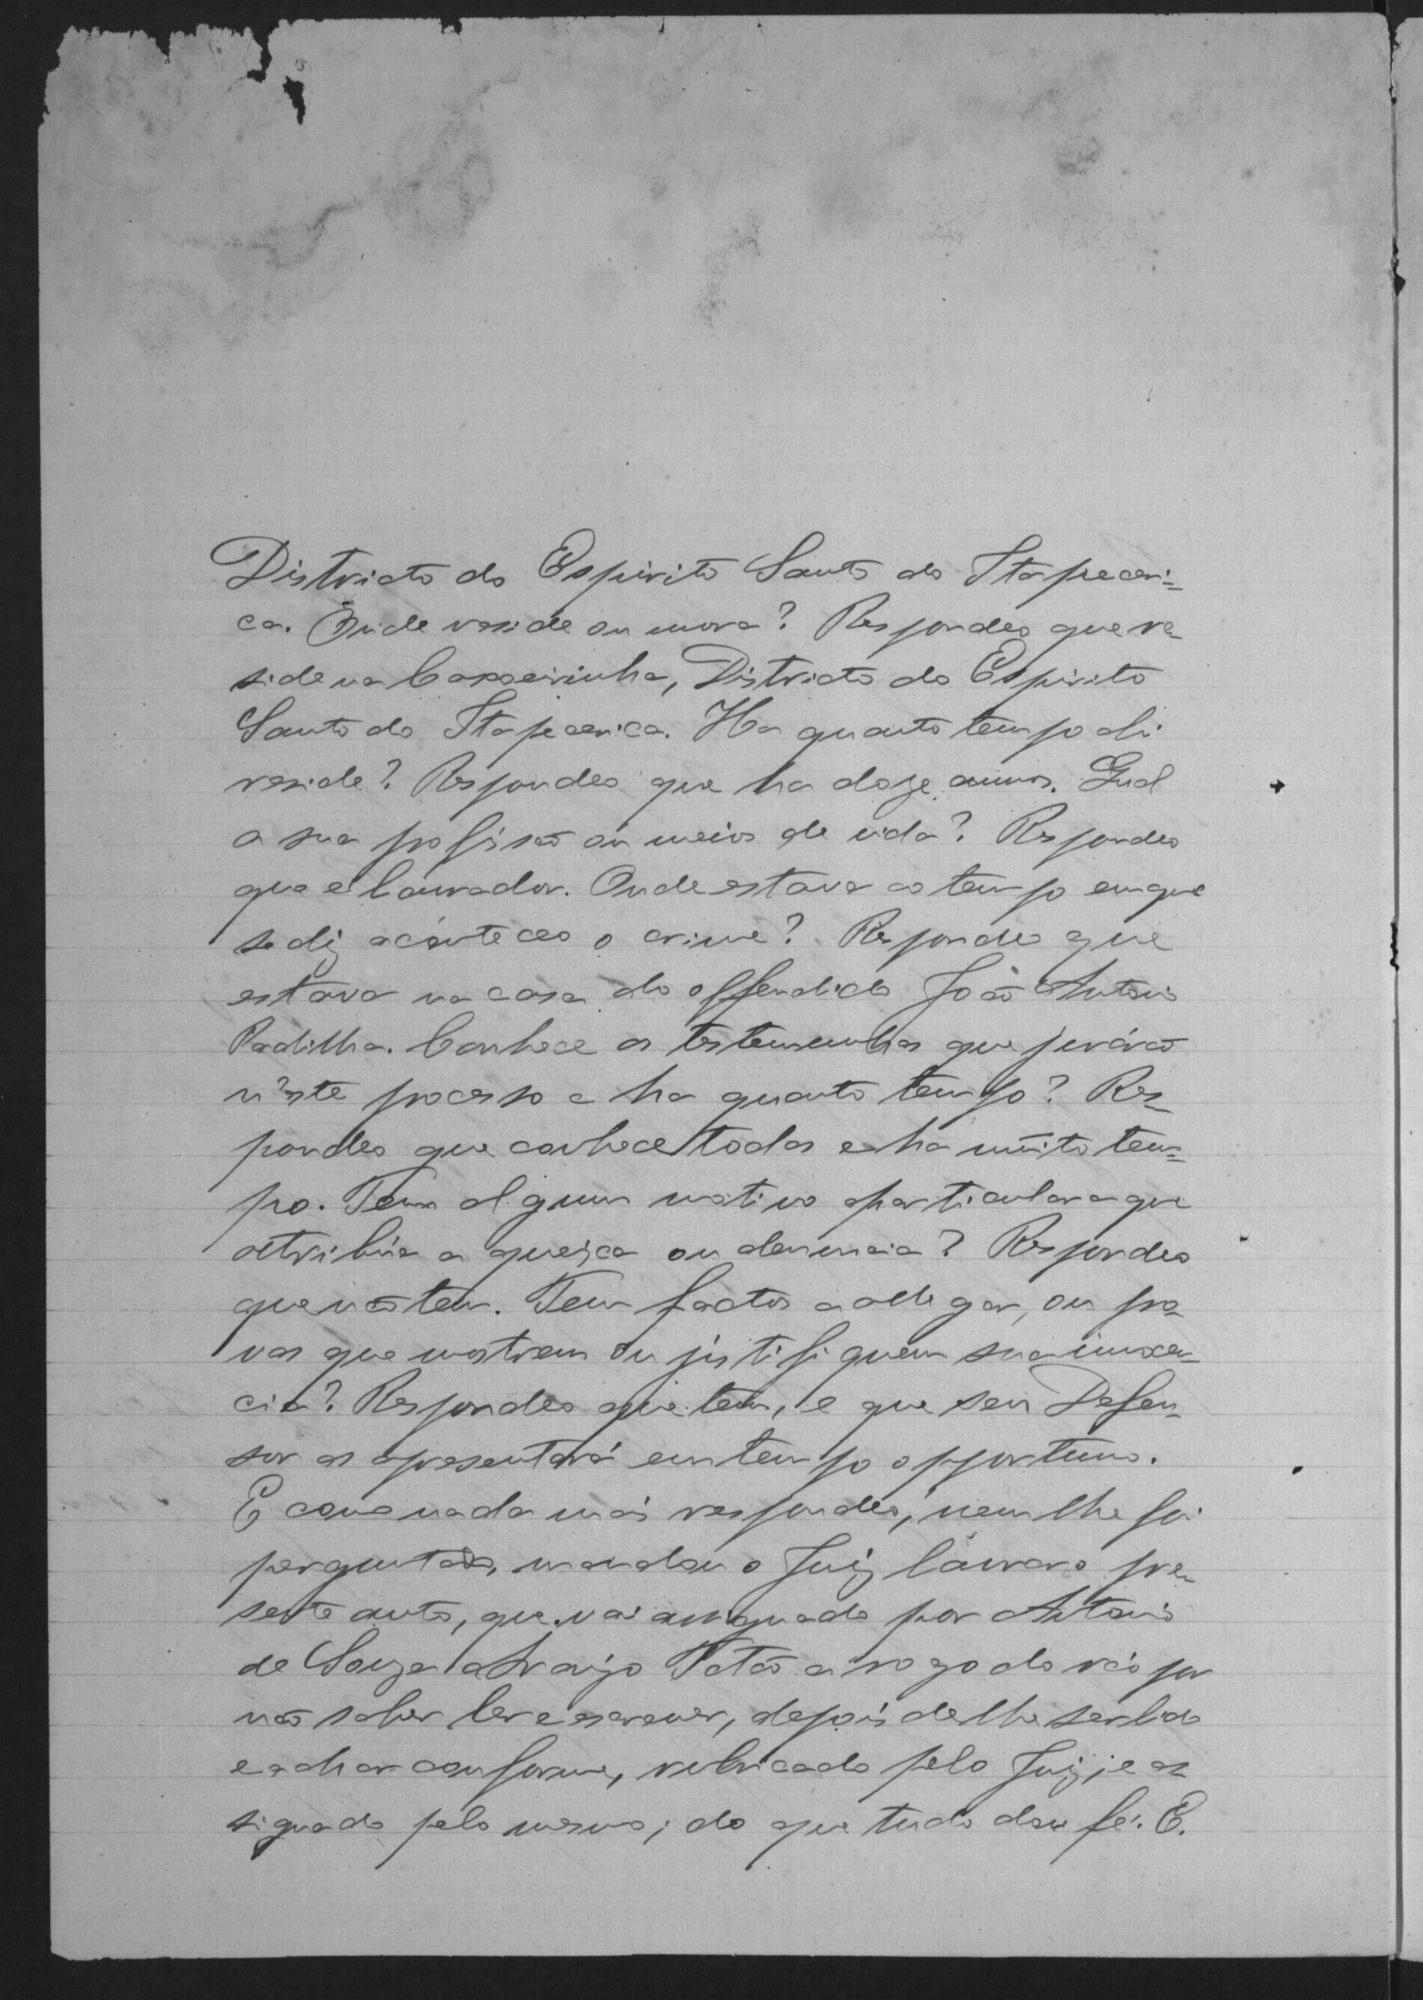 Districto do Espirito Santo do Itapeceri=
ca. Onde reside ou mora? Respondeo que re-
side na Caxoeirinha, Districto do Espirito
Santo do Itapecerica. Ha quanto tempo ahi
reside? Respondeo que ha doze annos. Qual
a sua profissão ou meios de vida? Respondeo
que é lavrador. Onde estava ao tempo em que
se diz aconteceo o crime? Respondeo que
estava na casa do offendido João Antonio
Padilha. Conhece as testemunhas que jurárão
n'este processo e ha quanto tempo? Res-
pondeo que conhece todas e ha muito tem=
po. Tem algum motivo particular a que
attribúa a queixa ou denuncia? Respondeo
que não tem. Tem factos a allegar, ou pro-
vas que mostrem ou justifiquem sua innocen-
cia? Respondeo que tem, e que seu Defen-
sor as apresentará em tempo opportuno.
E como nada mais respondeo, nem lhe foi
perguntado, mandou o Juiz lavrar o pre-
sente auto, que vai assignado por Antonio
de Souza Araujo a rogo do réo por
não saber ler e escrever, depois de lhe ser lido
e achar conforme, rubricado pelo Juiz, e as
signado pelo mesmo; do que tudo dou fé. E.